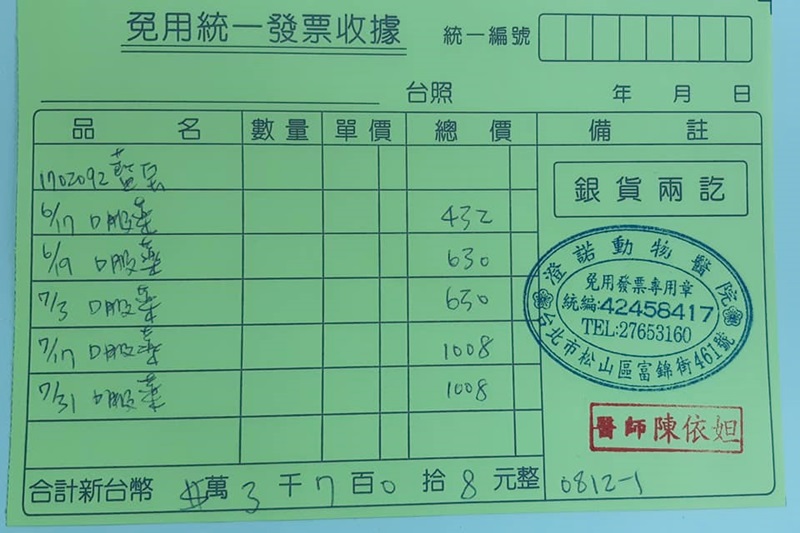 免用統一發票收據
統一編號
台照 年 月 日
品名 數量 單價 總價 備註
1702092 藍呆
銀貨兩訖
6/17 口服藥 432
6/19 口服藥 630
7/3 口服藥 630
7/17 口服藥 1008
7/31 口服藥 1008
澄諾動物醫院
免用發票專用章
統編:42458417
TEL:27653160
台北市松山區富錦街461號
醫師陳依妲
合計新台幣 萬 3 千 7 百 0 拾 8 元整
0812-1